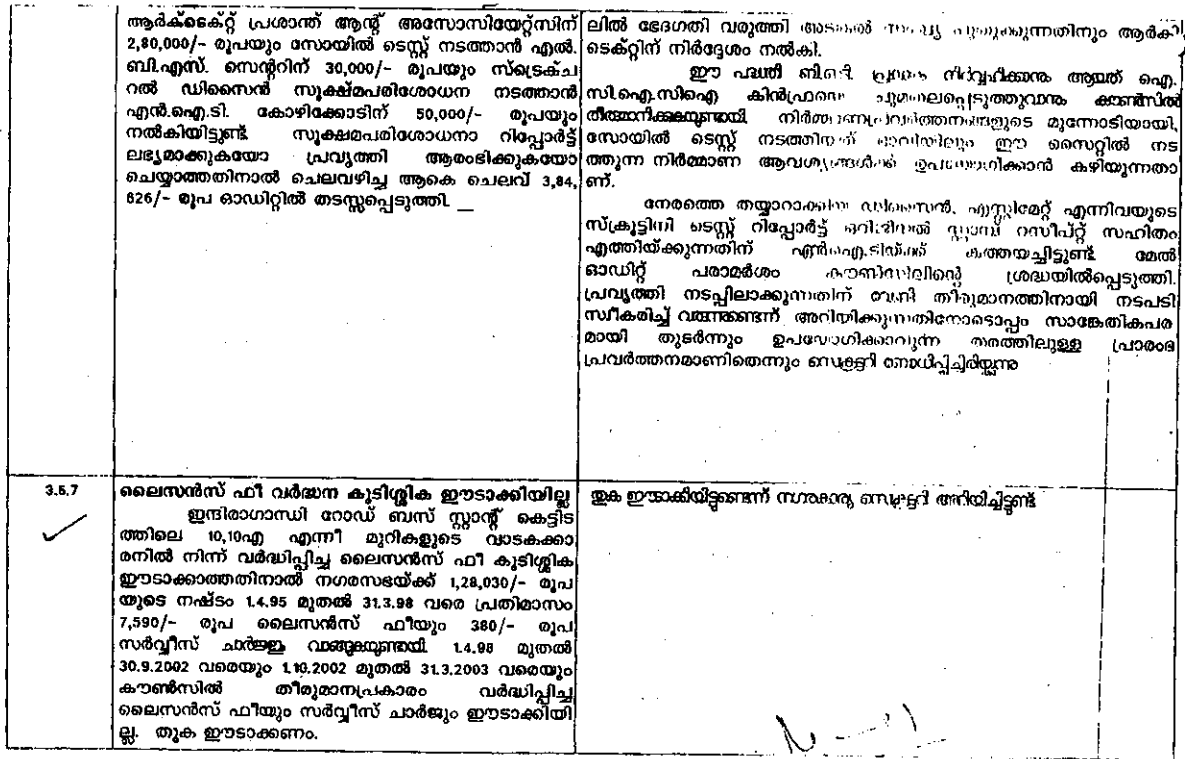 ആർക്ടെക്റ്റ് പ്രശാന്ത് ആന്റ് അസോസിയേറ്റ്സിന്
2,80,000/- രൂപയും സോയിൽ ടെസ്റ്റ് നടത്താൻ എൽ.
ബി.എസ്. സെന്ററിന് 30,000/- രൂപയും സ്ട്രെക്ച
റൽ ഡിസൈൻ സൂക്ഷ്മപരിശോധന നടത്താൻ
എൻ.ഐ.ടി. കോഴിക്കോടിന് 50,000/- രൂപയും
നൽകിയിട്ടുണ്ട്. സൂക്ഷമപരിശോധനാ റിപ്പോർട്ട്
ലഭ്യമാക്കുകയോ പ്രവൃത്തി ആരംഭിക്കുകയോ
ചെയ്യാത്തതിനാൽ ചെലവഴിച്ച ആകെ ചെലവ് 3,84,
626/- രൂപ ഓഡിറ്റിൽ തടസ്സപ്പെടുത്തി.
ലിൽ ഭേദഗതി വരുത്തി പുതുക്കുന്നതിനും ആർകി
ടെക്റ്റിന് നിർദ്ദേശം നൽകി.
ഈ പദ്ധതി ബി.ഒ.ടി നിർവ്വഹിക്കാനും ആയത് ഐ.
സി.ഐ.സിഐ കിൻഫ്രയെ ചുമതലപ്പെടുത്തുവാനും കൗൺസിൽ
തീരുമാനിക്കുകയുണ്ടായി. നിർമ്മാണപ്രവർത്തനങ്ങളുടെ മുന്നോടിയായി,
സോയിൽ ടെസ്റ്റ് നടത്തിയത് ഭാവിയിലും ഈ സൈറ്റിൽ നട
ത്തുന്ന നിർമ്മാണ ആവശ്യങ്ങൾക്ക് ഉപയോഗിക്കാൻ കഴിയുന്നതാ
ണ്.
നേരത്തെ തയ്യാറാക്കിയ ഡിസൈൻ, എസ്റ്റിമേറ്റ് എന്നിവയുടെ
സ്ക്രൂട്ടിനി ടെസ്റ്റ് റിപ്പോർട്ട് ഒറിജിനൽ സ്റ്റാമ്പ് റസീപ്റ്റ് സഹിതം
എത്തിയ്ക്കുന്നതിന് എൻ.ഐ.ടിയ്ക്ക് കത്തയച്ചിട്ടുണ്ട്. മേൽ
ഓഡിറ്റ് പരാമർശം കൗൺസിലിന്റെ ശ്രദ്ധയിൽപ്പെടുത്തി.
പ്രവൃത്തി നടപ്പിലാക്കുന്നതിന് വേണ്ടി തീരുമാനത്തിനായി നടപടി
സ്വീകരിച്ച് വരുന്നുണ്ടെന്ന് അറിയിക്കുന്നതിനോടൊപ്പം സാങ്കേതികപര
മായി തുടർന്നും ഉപയോഗിക്കാവുന്ന തരത്തിലുള്ള പ്രാരംഭ
പ്രവർത്തനമാണിതെന്നും സെക്രട്ടറി ബോധിപ്പിച്ചിരിയ്ക്കുന്നു
3.5.7
ലൈസൻസ് ഫീ വർദ്ധന കുടിശ്ശിക ഈടാക്കിയില്ല
ഇന്ദിരാഗാന്ധി റോഡ് ബസ് സ്റ്റാന്റ് കെട്ടിട
ത്തിലെ 10,10എ എന്നീ മുറികളുടെ വാടകക്കാ
രനിൽ നിന്ന് വർദ്ധിപ്പിച്ച ലൈസൻസ് ഫീ കുടിശ്ശിക
ഈടാക്കാത്തതിനാൽ നഗരസഭയ്ക്ക് 1,28,030/- രൂപ
യുടെ നഷ്ടം 1.4.95 മുതൽ 31.3.98 വരെ പ്രതിമാസം
7,590/- രൂപ ലൈസൻസ് ഫീയും 380/- രൂപ
സർവ്വീസ് ചാർജ്ജും വാങ്ങുകയുണ്ടായി. 1.4.98 മുതൽ
30.9.2002 വരെയും 1.10.2002 മുതൽ 31.3.2003 വരെയും
കൗൺസിൽ തീരുമാനപ്രകാരം വർദ്ധിപ്പിച്ച
ലൈസൻസ് ഫീയും സർവ്വീസ് ചാർജും ഈടാക്കിയി
ല്ല. തുക ഈടാക്കണം.
തുക ഈടാക്കിയിട്ടുണ്ടെന്ന് നഗരകാര്യ സെക്രട്ടറി അറിയിച്ചിട്ടുണ്ട്